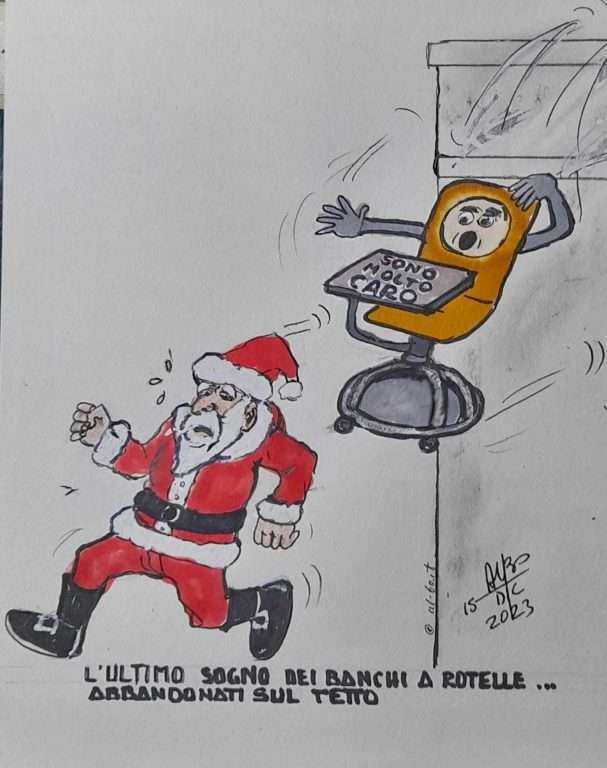 SONO
MOLTO
CARO
© al-bert
15
DIC
2023
L'ULTIMO SOGNO DEI BANCHI A ROTELLE ...
ABBANDONATI SUL TETTO